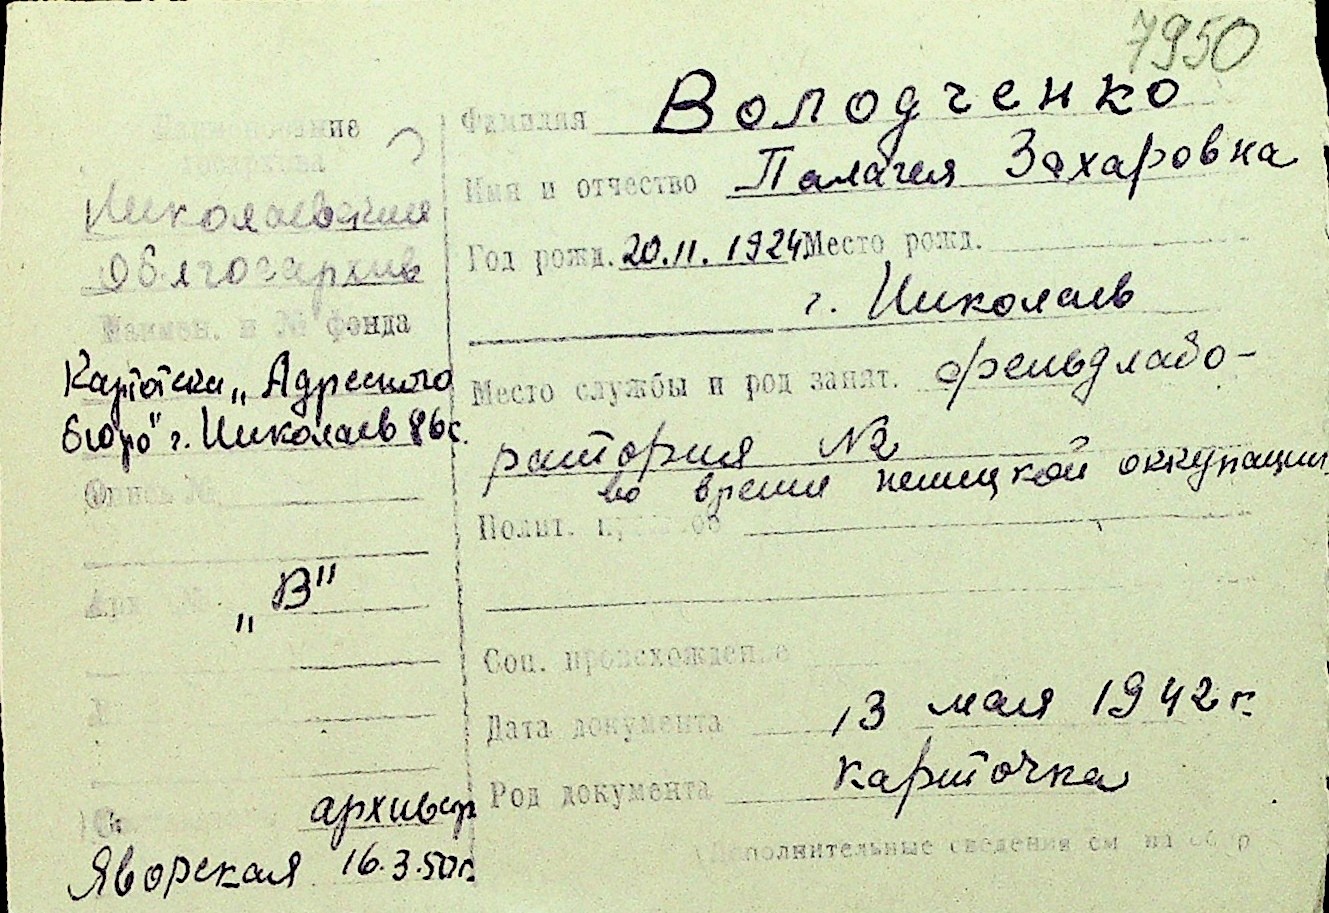 7950
Наименование
госархива
Николаевский
облгосархив
Наимен. и № фонда
Картотека „Адресного
бюро" г. Николаев 86с.
Опись №
„В"
архивар
Яворская 16.3.50г.
Фамилия Володченко
Имя и отчество Палагея Захаровна
Год рожд. 20.11.1924 Место рожд.
г. Николаев
Место службы и род занят. фельдлабо-
ратория №2
во время немецкой оккупации
Полит.
Соц. происхождение
Дата документа 13 мая 1942 г.
Род документа карточка
(Дополнительные сведения см на